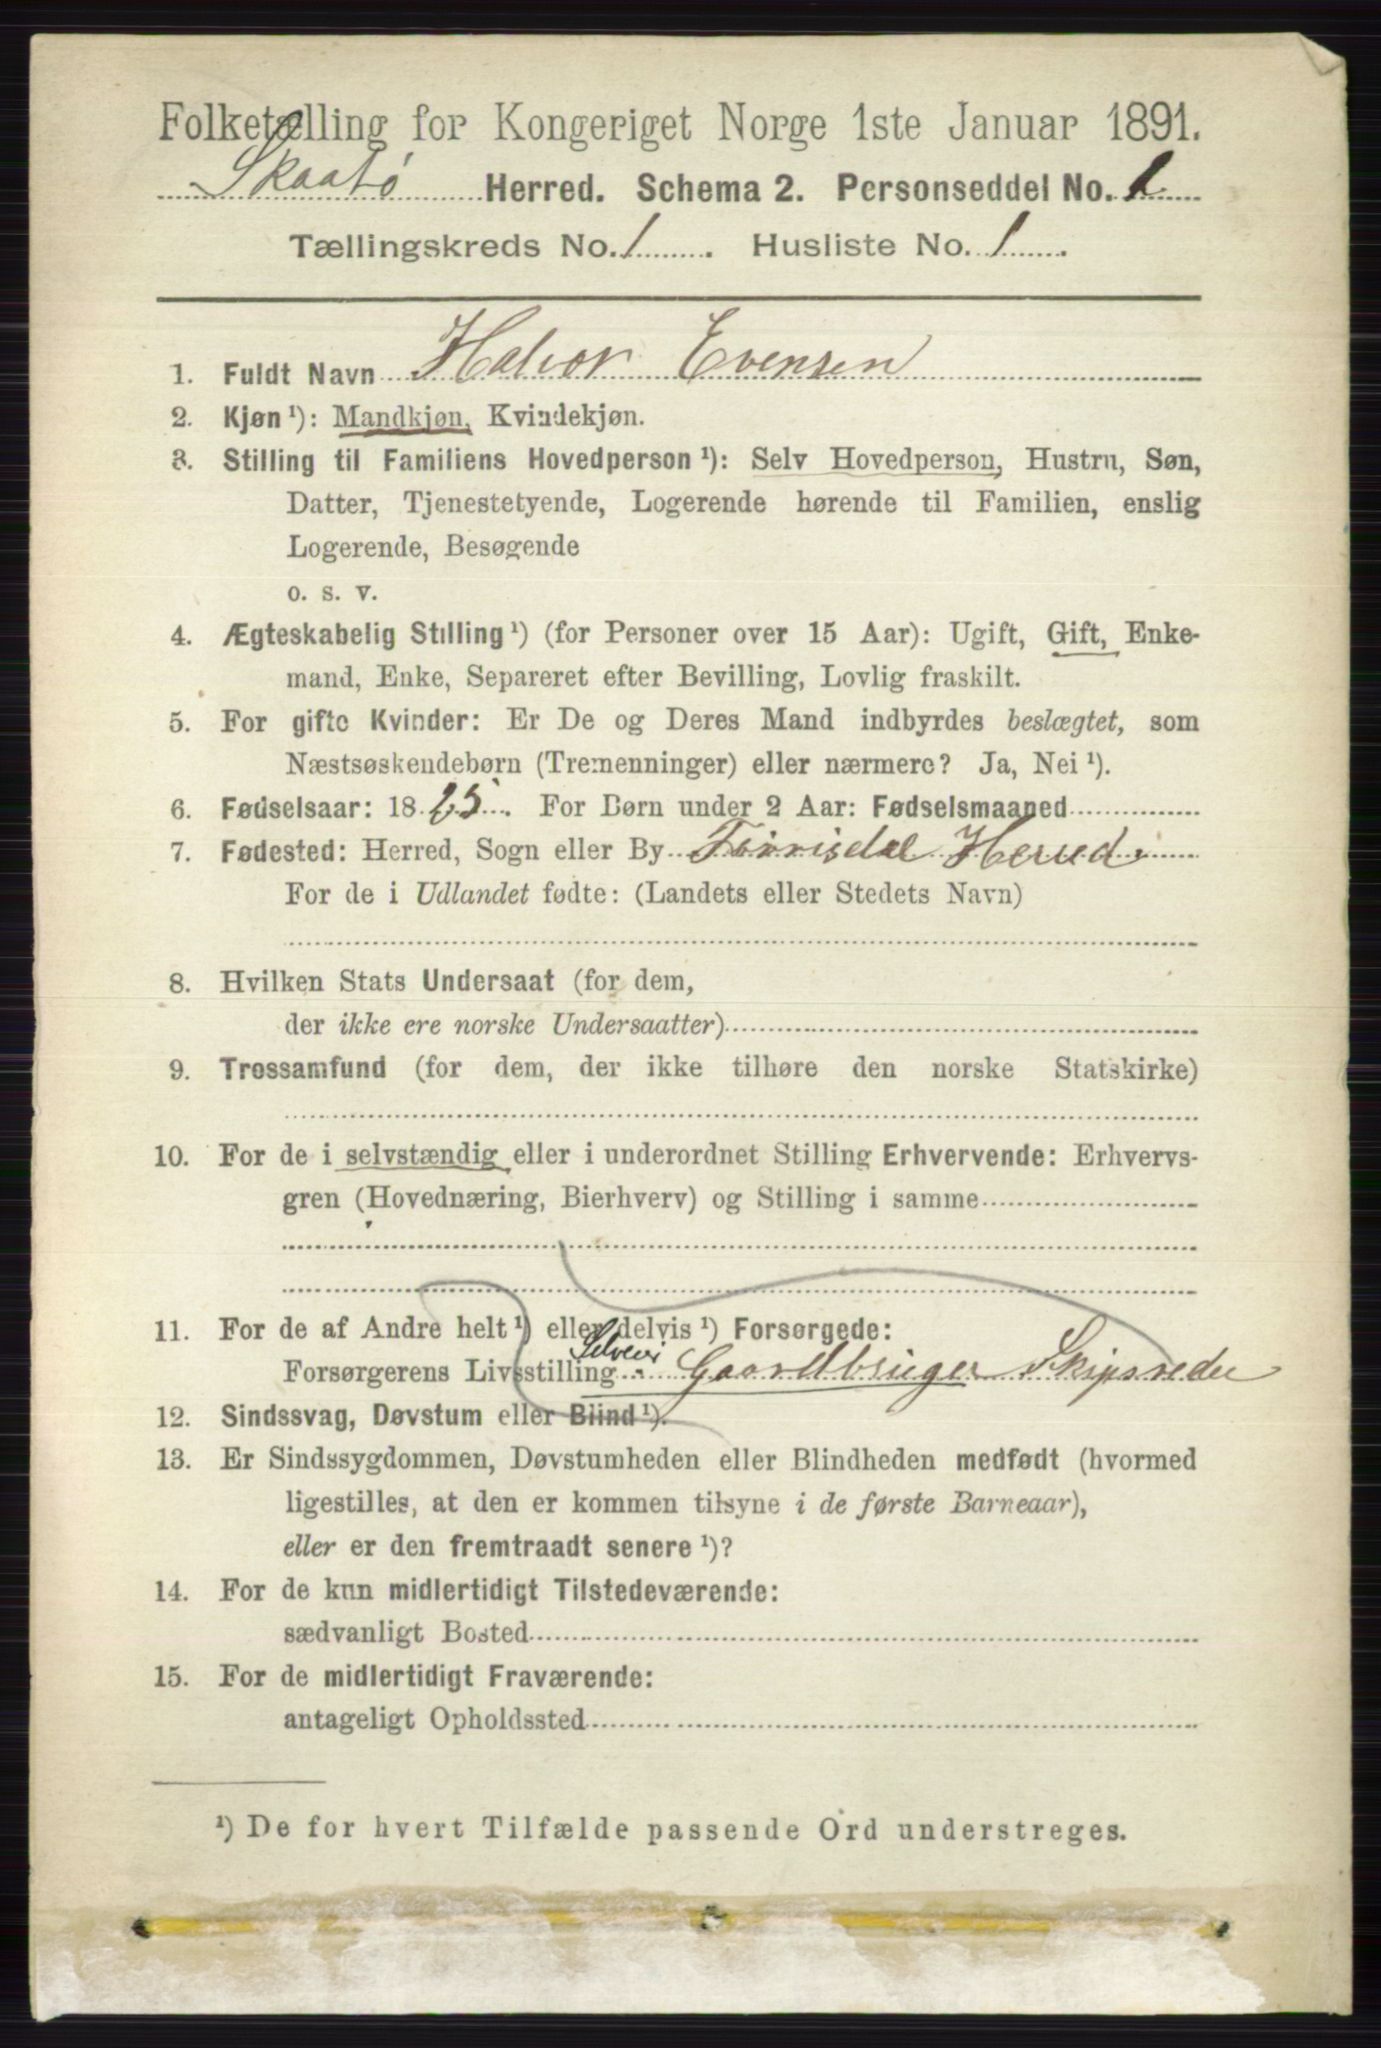 Folketælling for Kongeriget Norge 1ste Januar 1891.
Skaatø Herred. Schema 2. Personseddel No. 1
Tællingskreds No. 1. Husliste No. 1.
1. Fuldt Navn Halvor Evensen
2. Kjøn ¹): Mandkjøn, Kvindekjøn.
3. Stilling til Familiens Hovedperson ¹): Selv Hovedperson, Hustru, Søn,
Datter, Tjenestetyende, Logerende hørende til Familien, enslig
Logerende, Besøgende
o. s. v.
4. Ægteskabelig Stilling ¹) (for Personer over 15 Aar): Ugift, Gift, Enke-
mand, Enke, Separeret efter Bevilling, Lovlig fraskilt.
5. For gifte Kvinder: Er De og Deres Mand indbyrdes beslægtet, som
Næstsøskendebørn (Tremenninger) eller nærmere? Ja, Nei ¹).
6. Fødselsaar: 1825. For Børn under 2 Aar: Fødselsmaaned
7. Fødested: Herred, Sogn eller By Herred.
For de i Udlandet fødte: (Landets eller Stedets Navn)
8. Hvilken Stats Undersaat (for dem,
der ikke ere norske Undersaatter)
9. Trossamfund (for dem, der ikke tilhøre den norske Statskirke)
10. For de i selvstændig eller i underordnet Stilling Erhvervende: Erhvervs-
gren (Hovednæring, Bierhverv) og Stilling i samme
11. For de af Andre helt ¹) eller delvis ¹) Forsørgede:
Selveier
Forsørgerens Livsstilling Gaardbruger Skipsreder
12. Sindssvag, Døvstum eller Blind ¹).
13. Er Sindssygdommen, Døvstumheden eller Blindheden medfødt (hvormed
ligestilles, at den er kommen tilsyne i de første Barneaar),
eller er den fremtraadt senere ¹)?
14. For de kun midlertidigt Tilstedeværende:
sædvanligt Bosted
15. For de midlertidigt Fraværende:
antageligt Opholdssted
¹) De for hvert Tilfælde passende Ord understreges.